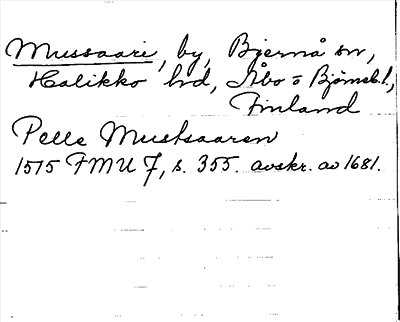 Mussaari, by, Bjernå sn,
Halikko hd, Åbo = Björneb. l.,
Finland
Pelle Mustsaaren
1515 FMU 7, s. 355. avskr. av 1681.